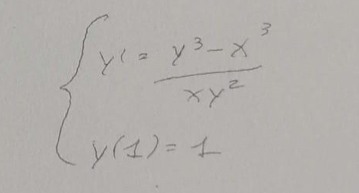 y' = y³ - x³ / xy²
y(1) = 1